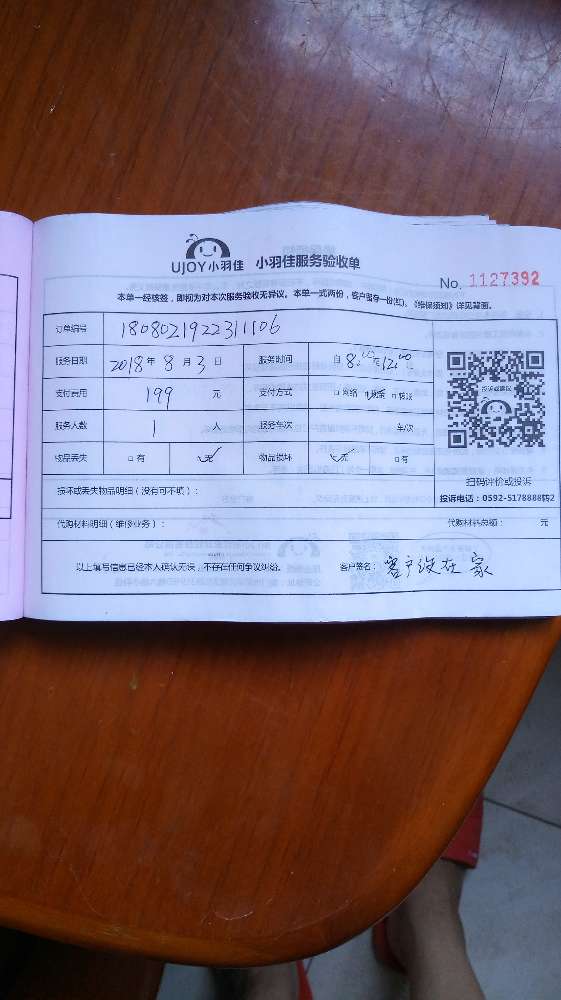 UJOY小羽佳 小羽佳服务验收单
No. 1127392
本单一经核签，即视为对本次服务验收无异议。本单一式两份，客户留存一份(红)。《维保须知》详见背面。
订单编号 1808021922311106
服务日期 2018年8月3日 服务时间 自8:00至12:00
支付费用 199 元 支付方式 □网络 ☑现金 □转账
服务人数 1 人 服务车次 车/次
物品丢失 □有 ☑无 物品损坏 ☑无 □有
扫码评价或投诉
投诉电话：0592-5178888转2
损坏或丢失物品明细（没有可不填）：
代购材料明细（维修业务）： 代购材料总额： 元
以上填写信息已经本人确认无误，不存在任何争议纠纷。 客户签名：客户没在家